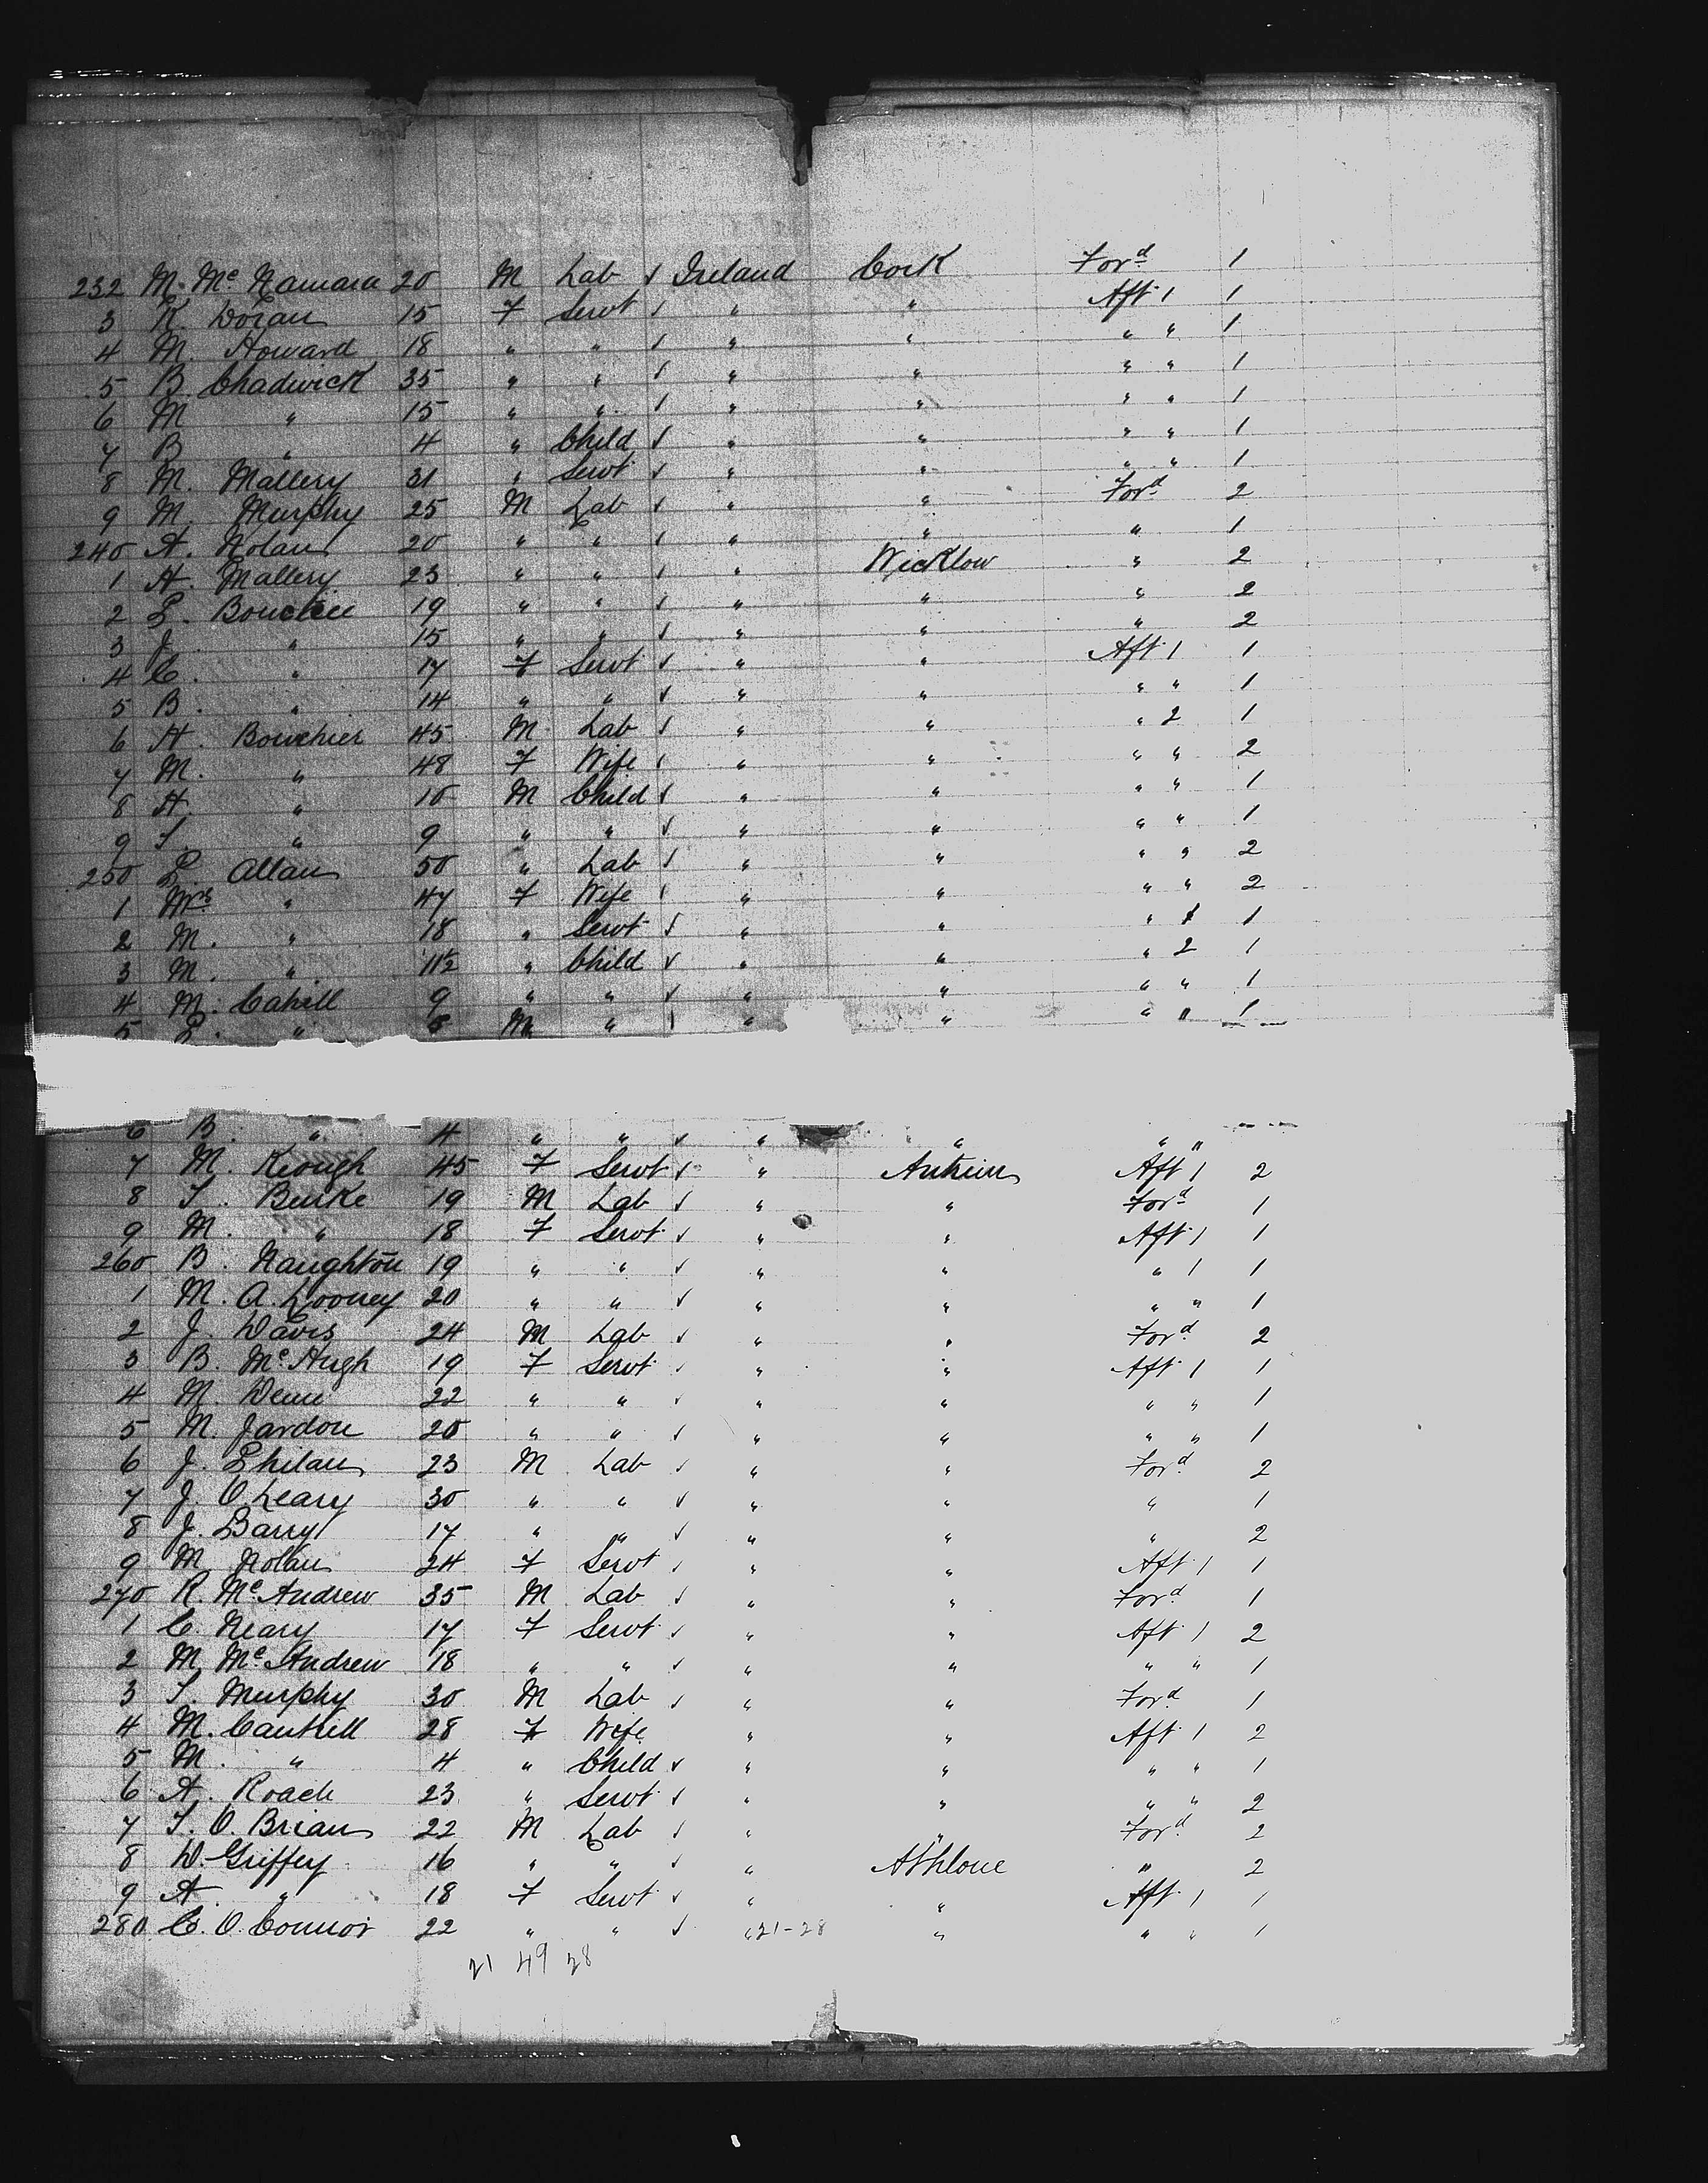 232 M. Mc Namara 20 M Lab ✓ Ireland Cork Ford 1
3 K. Doran 15 F Servt ✓ " " Aft 1 1
4 M. Howard 18 " " ✓ " " " " 1
5 B. Chadwick 35 " " ✓ " " " " 1
6 M " 15 " " ✓ " " " " 1
7 B " 4 " Child ✓ " " " " 1
8 M. Mallery 31 " Servt ✓ " " " " 1
9 M. Murphy 25 M Lab ✓ " " Ford 2
240 A. Nolan 20 " " ✓ " " " 1
1 H. Mallery 23 " " ✓ " Wicklow " 2
2 L. 19 " " ✓ " " " 2
3 J. " 15 " " ✓ " " " 2
4 C. " 17 F Servt ✓ " " Aft 1 1
5 B. " 14 " " ✓ " " " " 1
6 H. Bouchier 45 M Lab ✓ " " " 2 1
7 M. " 48 F Wife ✓ " " " " 2
8 H. " 10 M Child ✓ " " " " 1
9 T. " 9 " " ✓ " " " " 1
250 L. Allan 50 " Lab ✓ " " " " 2
1 Mrs " 47 F Wife ✓ " " " " 2
2 M. " 18 " Servt ✓ " " " 1 1
3 M. " 11½ " Child ✓ " " " 2 1
4 M. Cahill 9 " " ✓ " " " " 1
5 " M " ✓ " " " " 1
6 B. " 4 " " ✓ " " " "
7 M. Keough 45 F Servt ✓ " Antrim Aft 1 2
8 T. Burke 19 M Lab ✓ " " Ford 1
9 M. " 18 F Servt ✓ " " Aft 1 1
260 B. Naughton 19 " " ✓ " " " 1 1
1 M. A. Looney 20 " " ✓ " " " " 1
2 J. Davis 24 M Lab ✓ " " Ford 2
3 B. Mc Hugh 19 F Servt ✓ " " Aft 1 1
4 M. 22 " " ✓ " " " " 1
5 M. Jardon 20 " " ✓ " " " " 1
6 J. 23 M Lab ✓ " " Ford 2
7 J. O Leary 30 " " ✓ " " " 1
8 J. Barry 17 " " ✓ " " " 2
9 M. Nolan 24 F Servt ✓ " " Aft 1 1
270 R. Mc Andrew 35 M Lab ✓ " " Ford 1
1 C. Neary 17 F Servt ✓ " " Aft 1 2
2 M. Mc Andrew 18 " " ✓ " " " " 1
3 T. Murphy 30 M Lab ✓ " " Ford 1
4 M. 28 F Wife " " Aft 1 2
5 M. " 4 " Child ✓ " " " " 1
6 A. Roach 23 " Servt ✓ " " " " 2
7 T. O. Brian 22 M Lab ✓ " " Ford 2
8 W. Griffey 16 " " ✓ " Athlone " 2
9 A. " 18 F Servt ✓ " " Aft 1 1
280 C. O. Connor 22 " " ✓ " 21-28 " " " 1
21 49 28